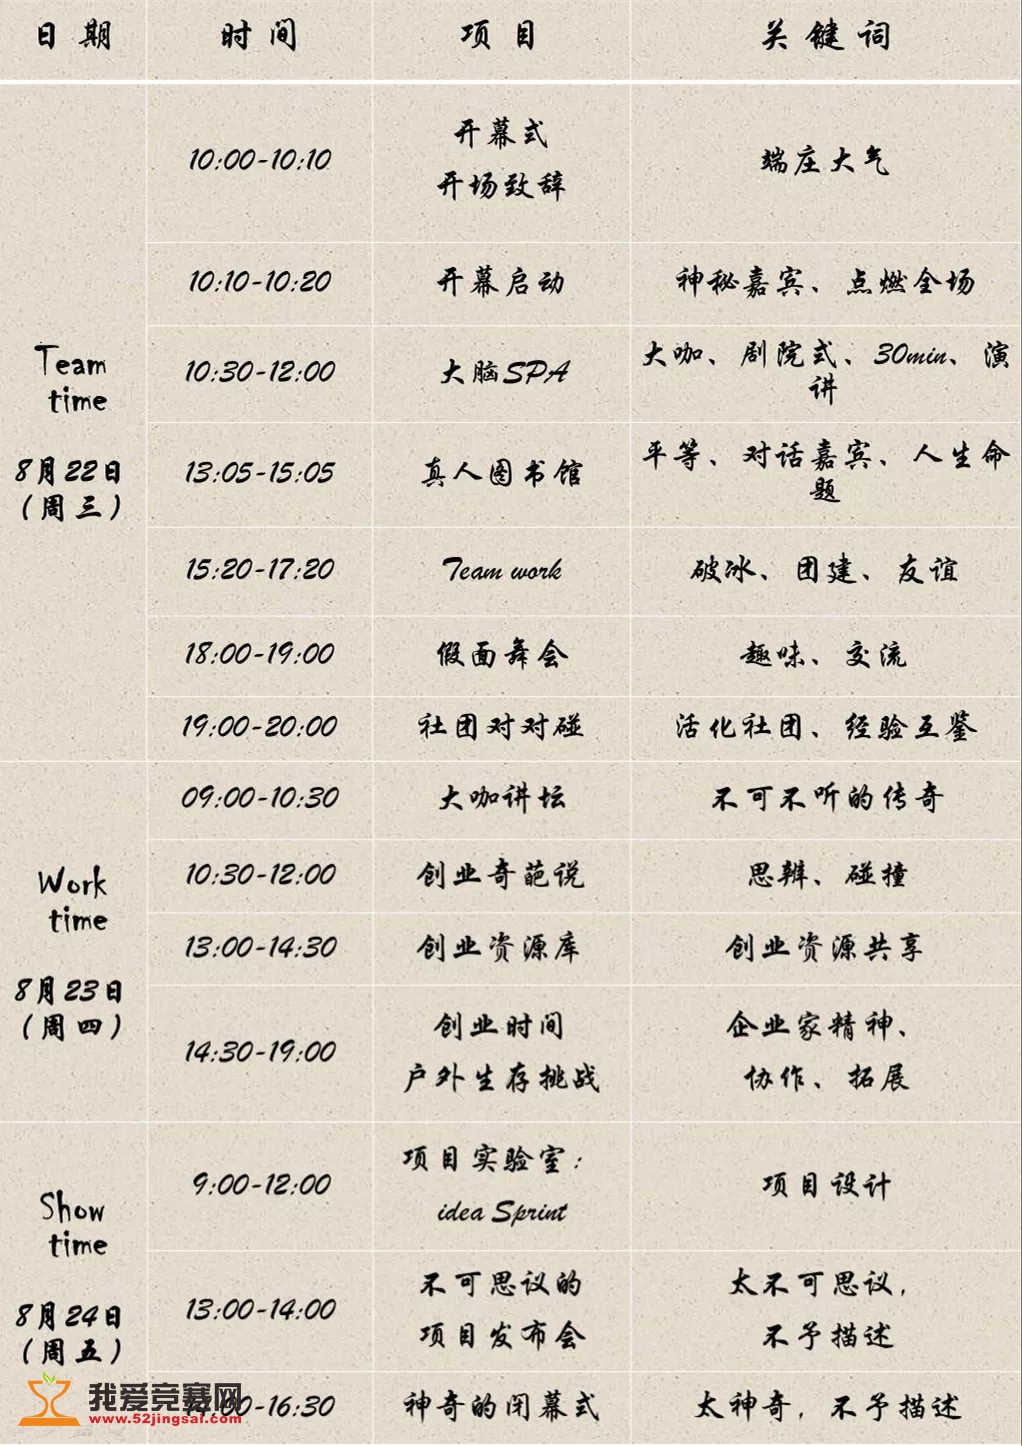 日期 时间 项目 关键词
Team
time
8月22日
（周三）
10:00-10:10
开幕式
开场致辞
端庄大气
10:10-10:20 开幕启动 神秘嘉宾、点燃全场
10:30-12:00 大脑SPA
大咖、剧院式、30min、演
讲
13:05-15:05 真人图书馆
平等、对话嘉宾、人生命
题
15:20-17:20 Team work 破冰、团建、友谊
18:00-19:00 假面舞会 趣味、交流
19:00-20:00 社团对对碰 活化社团、经验互鉴
Work
time
8月23日
（周四）
09:00-10:30 大咖讲坛 不可不听的传奇
10:30-12:00 创业奇葩说 思辨、碰撞
13:00-14:30 创业资源库 创业资源共享
14:30-19:00
创业时间
户外生存挑战
企业家精神、
协作、拓展
Show
time
8月24日
（周五）
9:00-12:00
项目实验室：
idea Sprint
项目设计
13:00-14:00
不可思议的
项目发布会
太不可思议，
不予描述
-16:30 神奇的闭幕式 太神奇，不予描述
我爱竞赛网
www.52jingsai.com